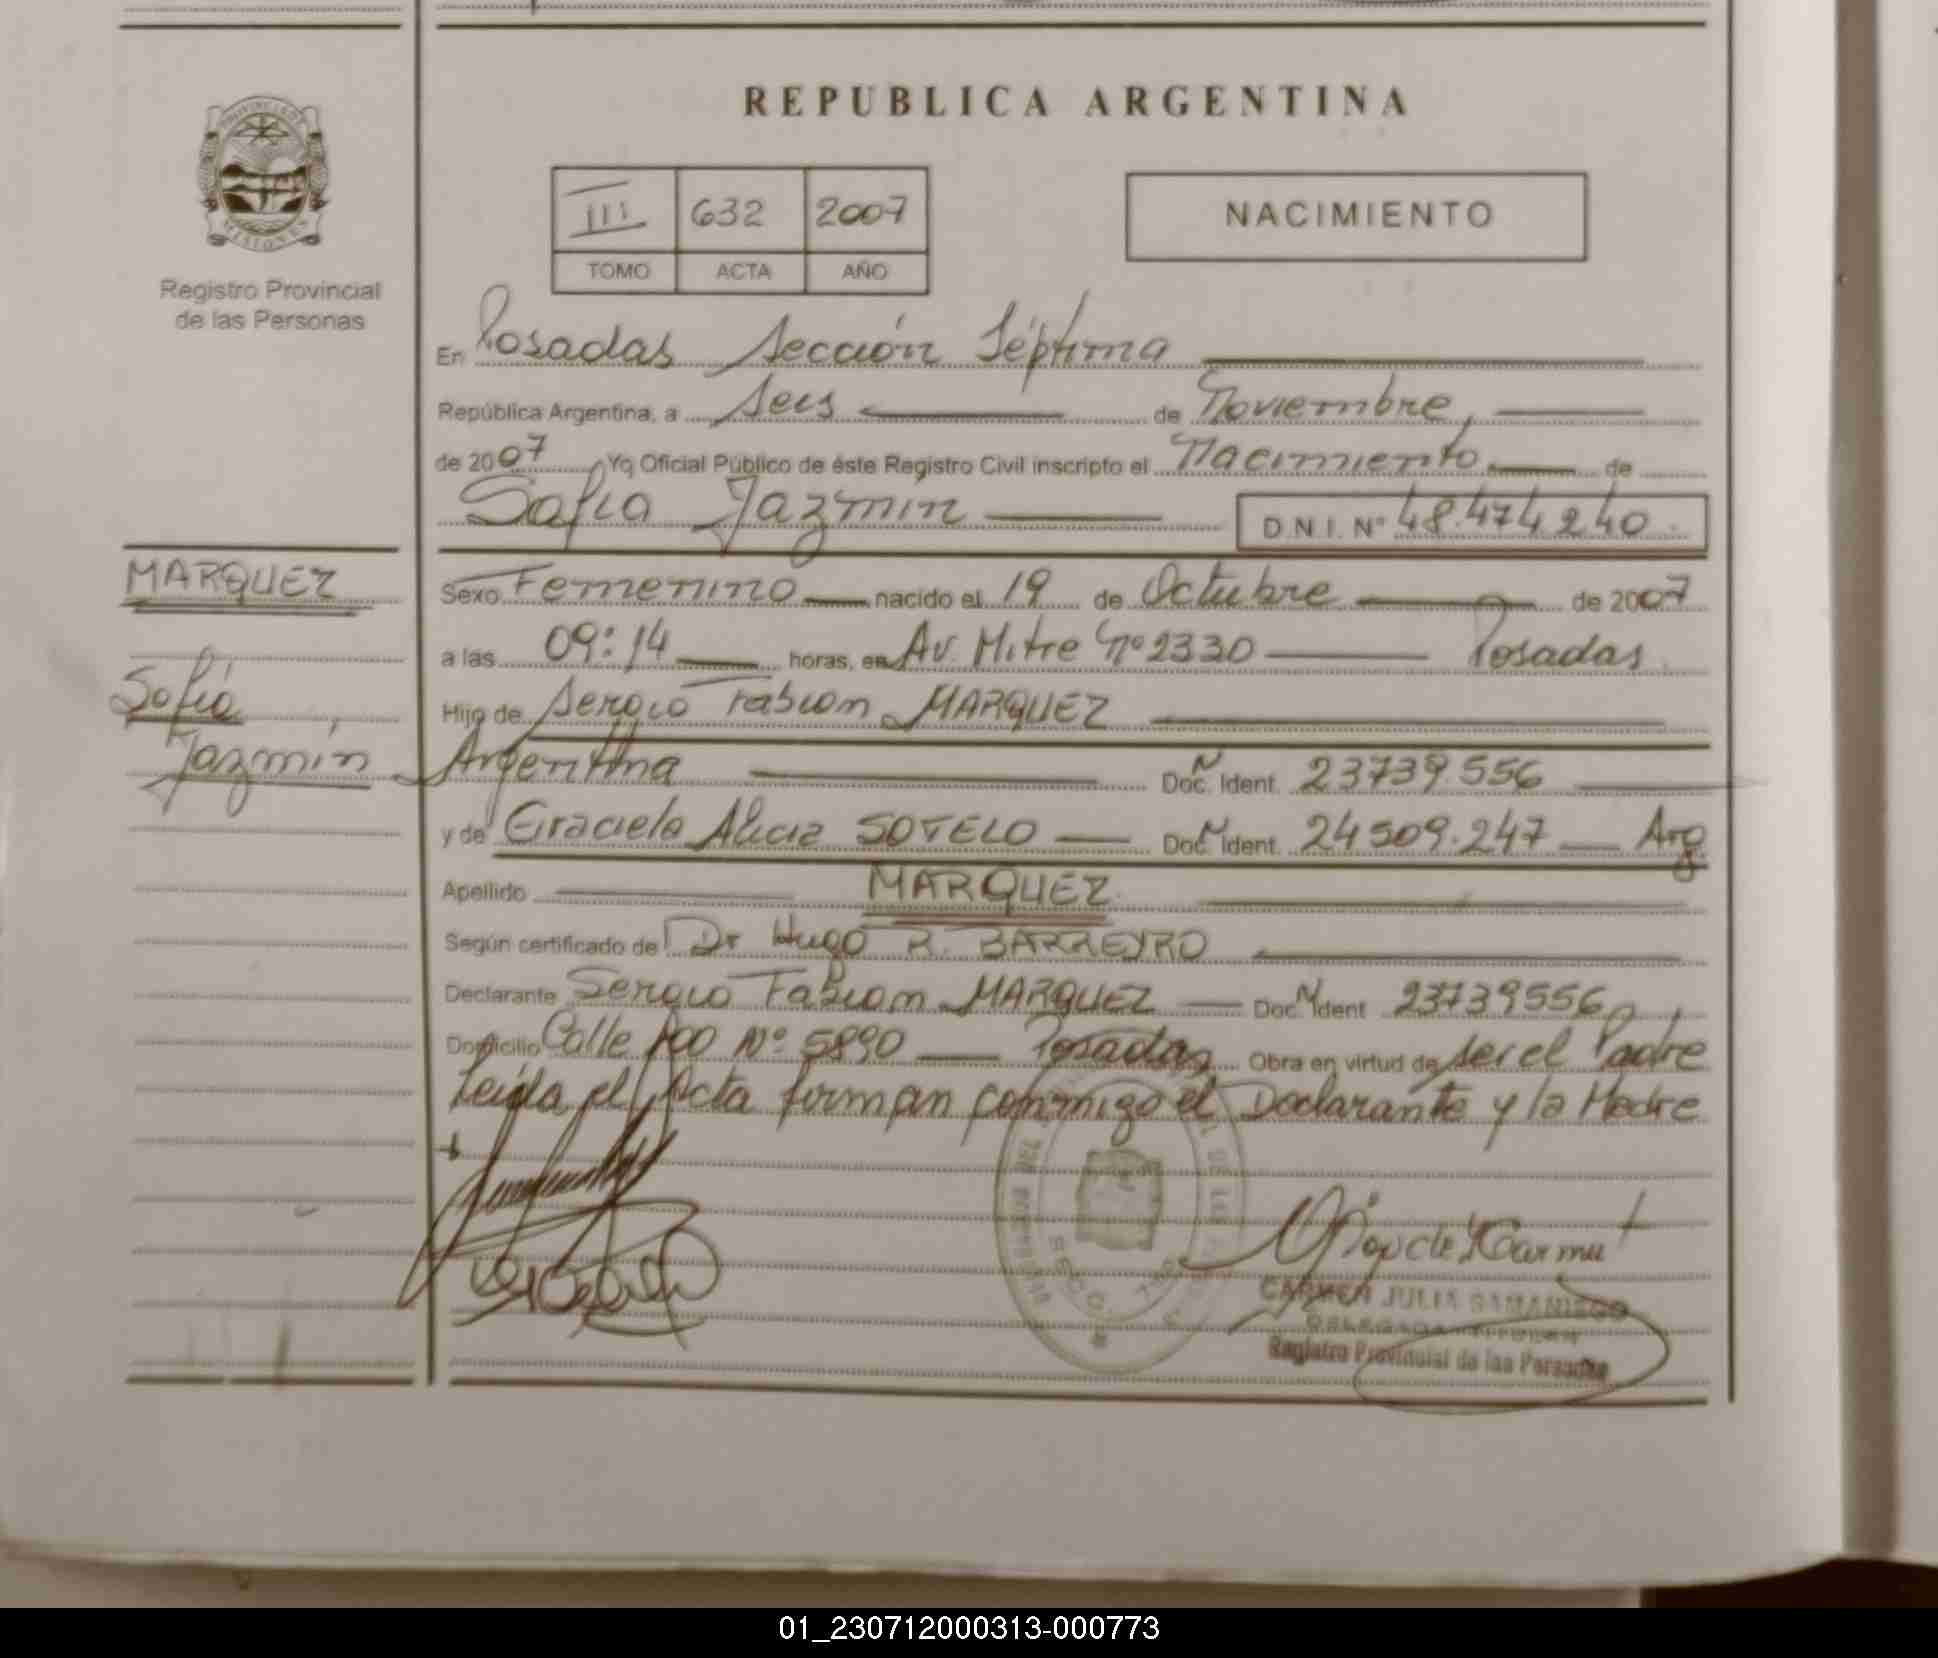 REPUBLICA ARGENTINA
PROVINCIA DE
MISIONES
Registro Provincial
de las Personas
III 632 2007
TOMO ACTA AÑO
NACIMIENTO
En Posadas Sección Séptima
República Argentina, a Seis de Noviembre,
de 2007 Yo Oficial Público de éste Registro Civil inscripto el Nacimiento de
Sofía Jazmín D.N.I. Nº 48.474240.
MARQUEZ
Sofía
Jazmín
Sexo Femenino nacido el 19 de Octubre de 2007
a las 09:14 horas, en Av. Mitre Nº 2330 Posadas
Hijo de Sergio Fabian MARQUEZ
Argentina Doc. Ident. 23739.556
y de Graciela Alicia SOTELO Doc. Ident. 24509.247 Arg
Apellido MARQUEZ
Según certificado de Dr Hugo R. BARREYRO
Declarante Sergio Fabian MARQUEZ Doc. Ident 23739556
Domicilio Calle Nº 5890 Posadas Obra en virtud de ser el Padre
Leida el Acta firman conmigo el Declarante y la Madre
CARMEN JULIA SAMANIEGO
DELEGADA TITULAR
Registro Provincial de las Personas
01_230712000313-000773